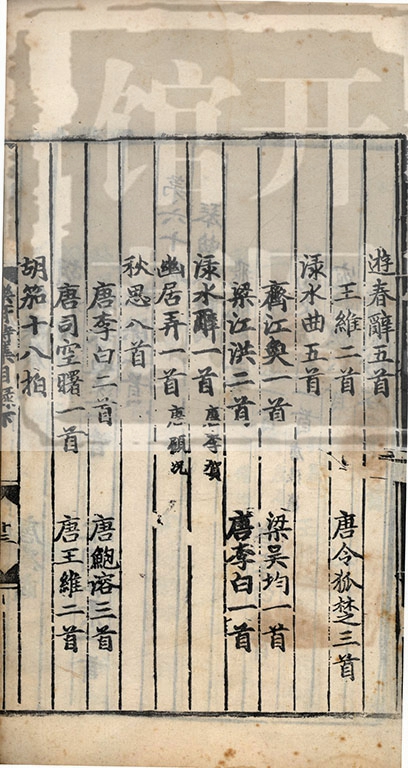 遊春辭五首
王維二首 唐令狐楚三首
淥水曲五首
齊江奐一首 梁吳均一首
梁江洪二首 唐李白一首
淥水辭一首 唐李賀
幽居弄一首 唐顧況
秋思八首
唐李白二首 唐鮑溶三首
唐司空曙一首 唐王維二首
胡笳十八拍